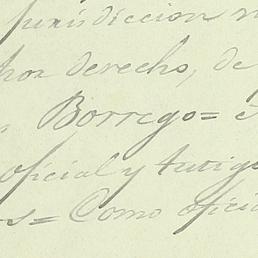 jurisdiccion
por derecho, de
Borrego =
oficial y testigo
= Como oficia